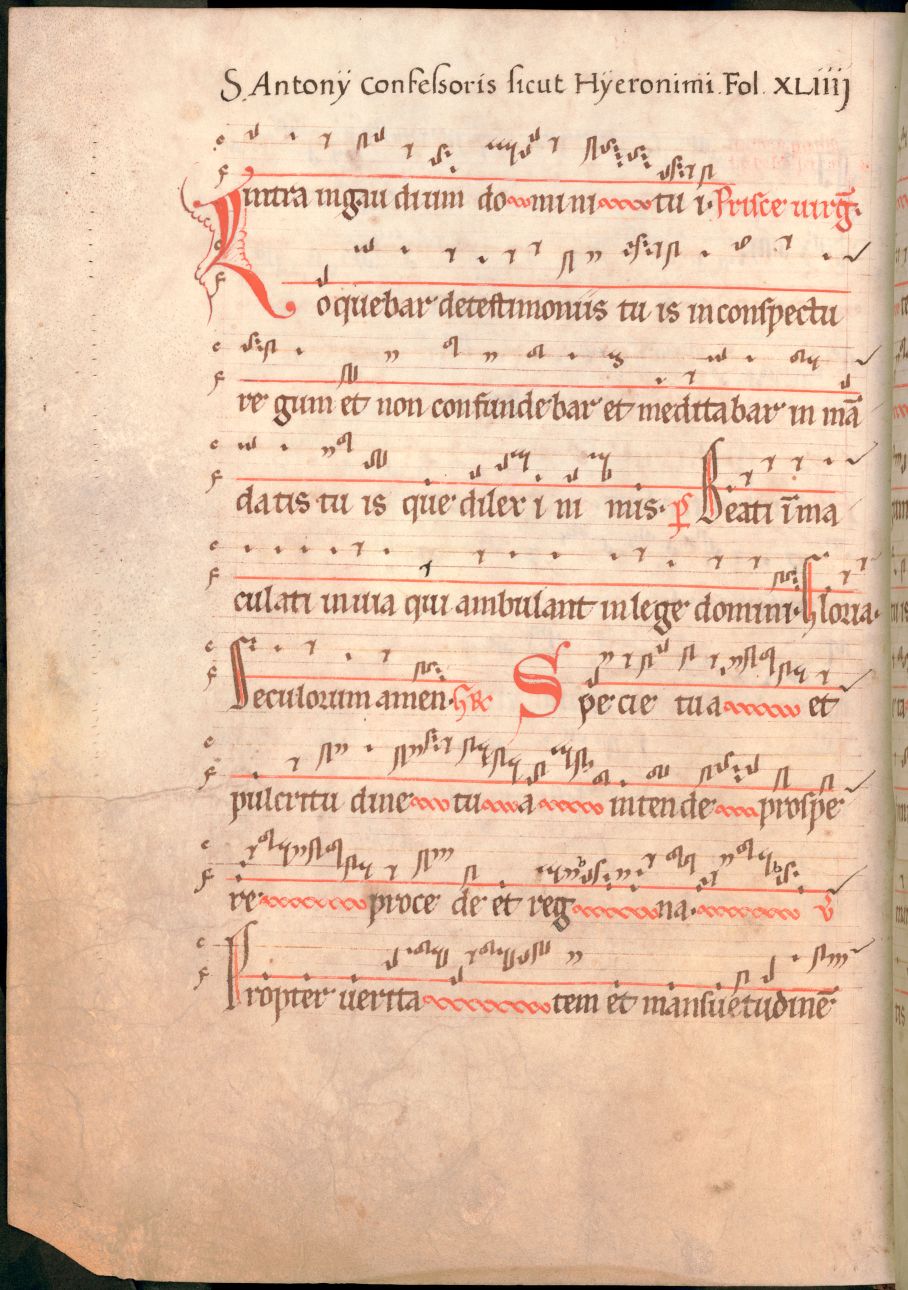 S. Antonÿ Confessoris sicut Hÿeronimi. Fol. XLIIIJ
intra in gau dium do mini ni tu i. Prisce uirg̅.
Loquebar de testimoniis tu is in conspectu
re gum et non confundebar et meditabar in mā
datis tu is que dilex i ni mis. p̱s Beati īma
culati in uia qui ambulant in lege domini. Gloria.
Seculorum amen. GR Specie tua et
pulcritu dine tu a inten de prospe
re proce de et reg na. V̄
Propter uerita tem et mansuetudinē